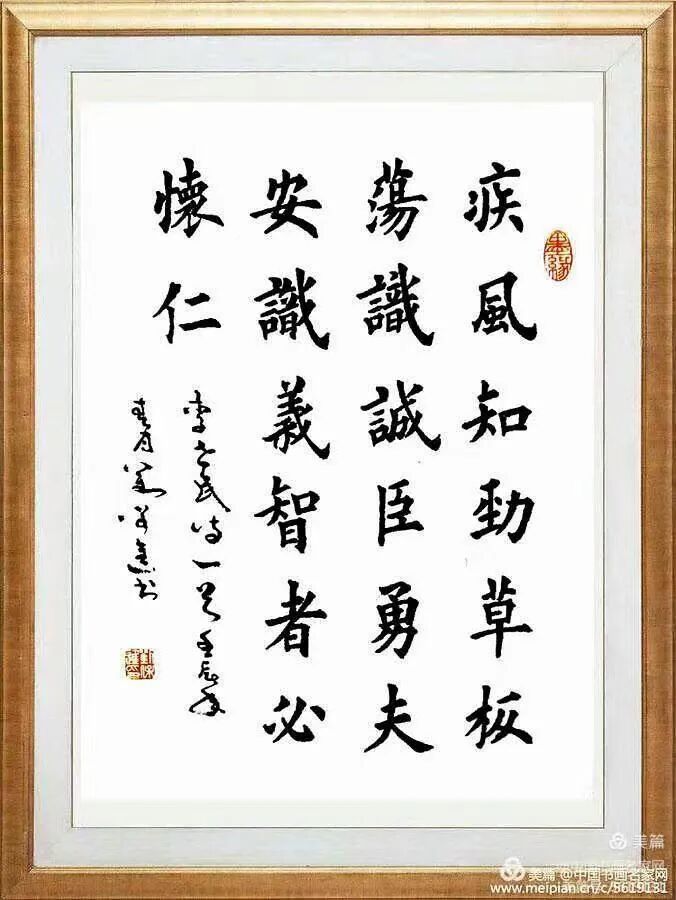 疾風知勁草板
蕩識誠臣勇夫
安識義智者必
懷仁
李世民诗一首壬辰年
春月
書緣
美篇
美篇 @中国书画名家网
www.meipian.cn/c/5619131